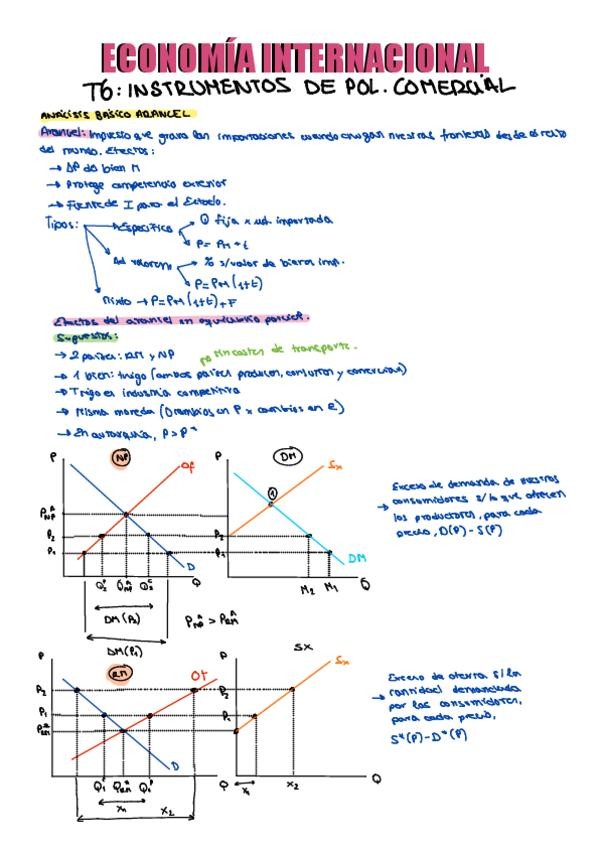 ECONOMÍA INTERNACIONAL
T6: INSTRUMENTOS DE POL. COMERCIAL
ANÁLISIS BÁSICO ARANCEL
Arancel: Impuesto que grava las importaciones cuando cruzan nuestras fronteras desde el resto
del mundo. Efectos:
→ ΔP do bien M
→ Protege competencia exterior
→ Fuente de I para el Estado.
Tipos: → Específico → Q fija x ud. importada
→ P = PM + t
Ad valorem → % s/valor de bienes imp.
→ P = PM (1+t)
Mixto → P = PM (1+t) + F
Efectos del arancel en equilibrio parcial.
Supuestos:
→ 2 países: RM y NP sin costes de transporte.
→ 1 bien: trigo (ambos países producen, consumen y comercian)
→ Trigo es industria competitiva
→ Misma moneda (0 cambios en P x cambios en E)
→ En autarquía, P > P*
P NP Of P DM Sx
1
Exceso de demanda de nuestros
consumidores s/lo que ofrecen
los productores, para cada
precio, D(P) - S(P)
P2 P2
P1 P1
D Q DM Q
M2 M1
DM(P2)
DM(P1)
P RM Of P SX Sx
Exceso de oferta s/la
cantidad demandada
por los consumidores,
para cada precio,
S*(P) - D*(P)
P2 P2
P1 P1
D Q Q
X1 X2 X1 X2